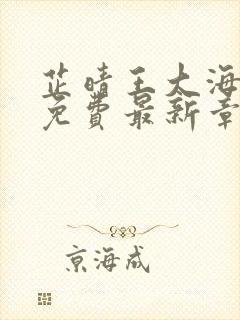 芷晴王大海
免费最新章
京海成